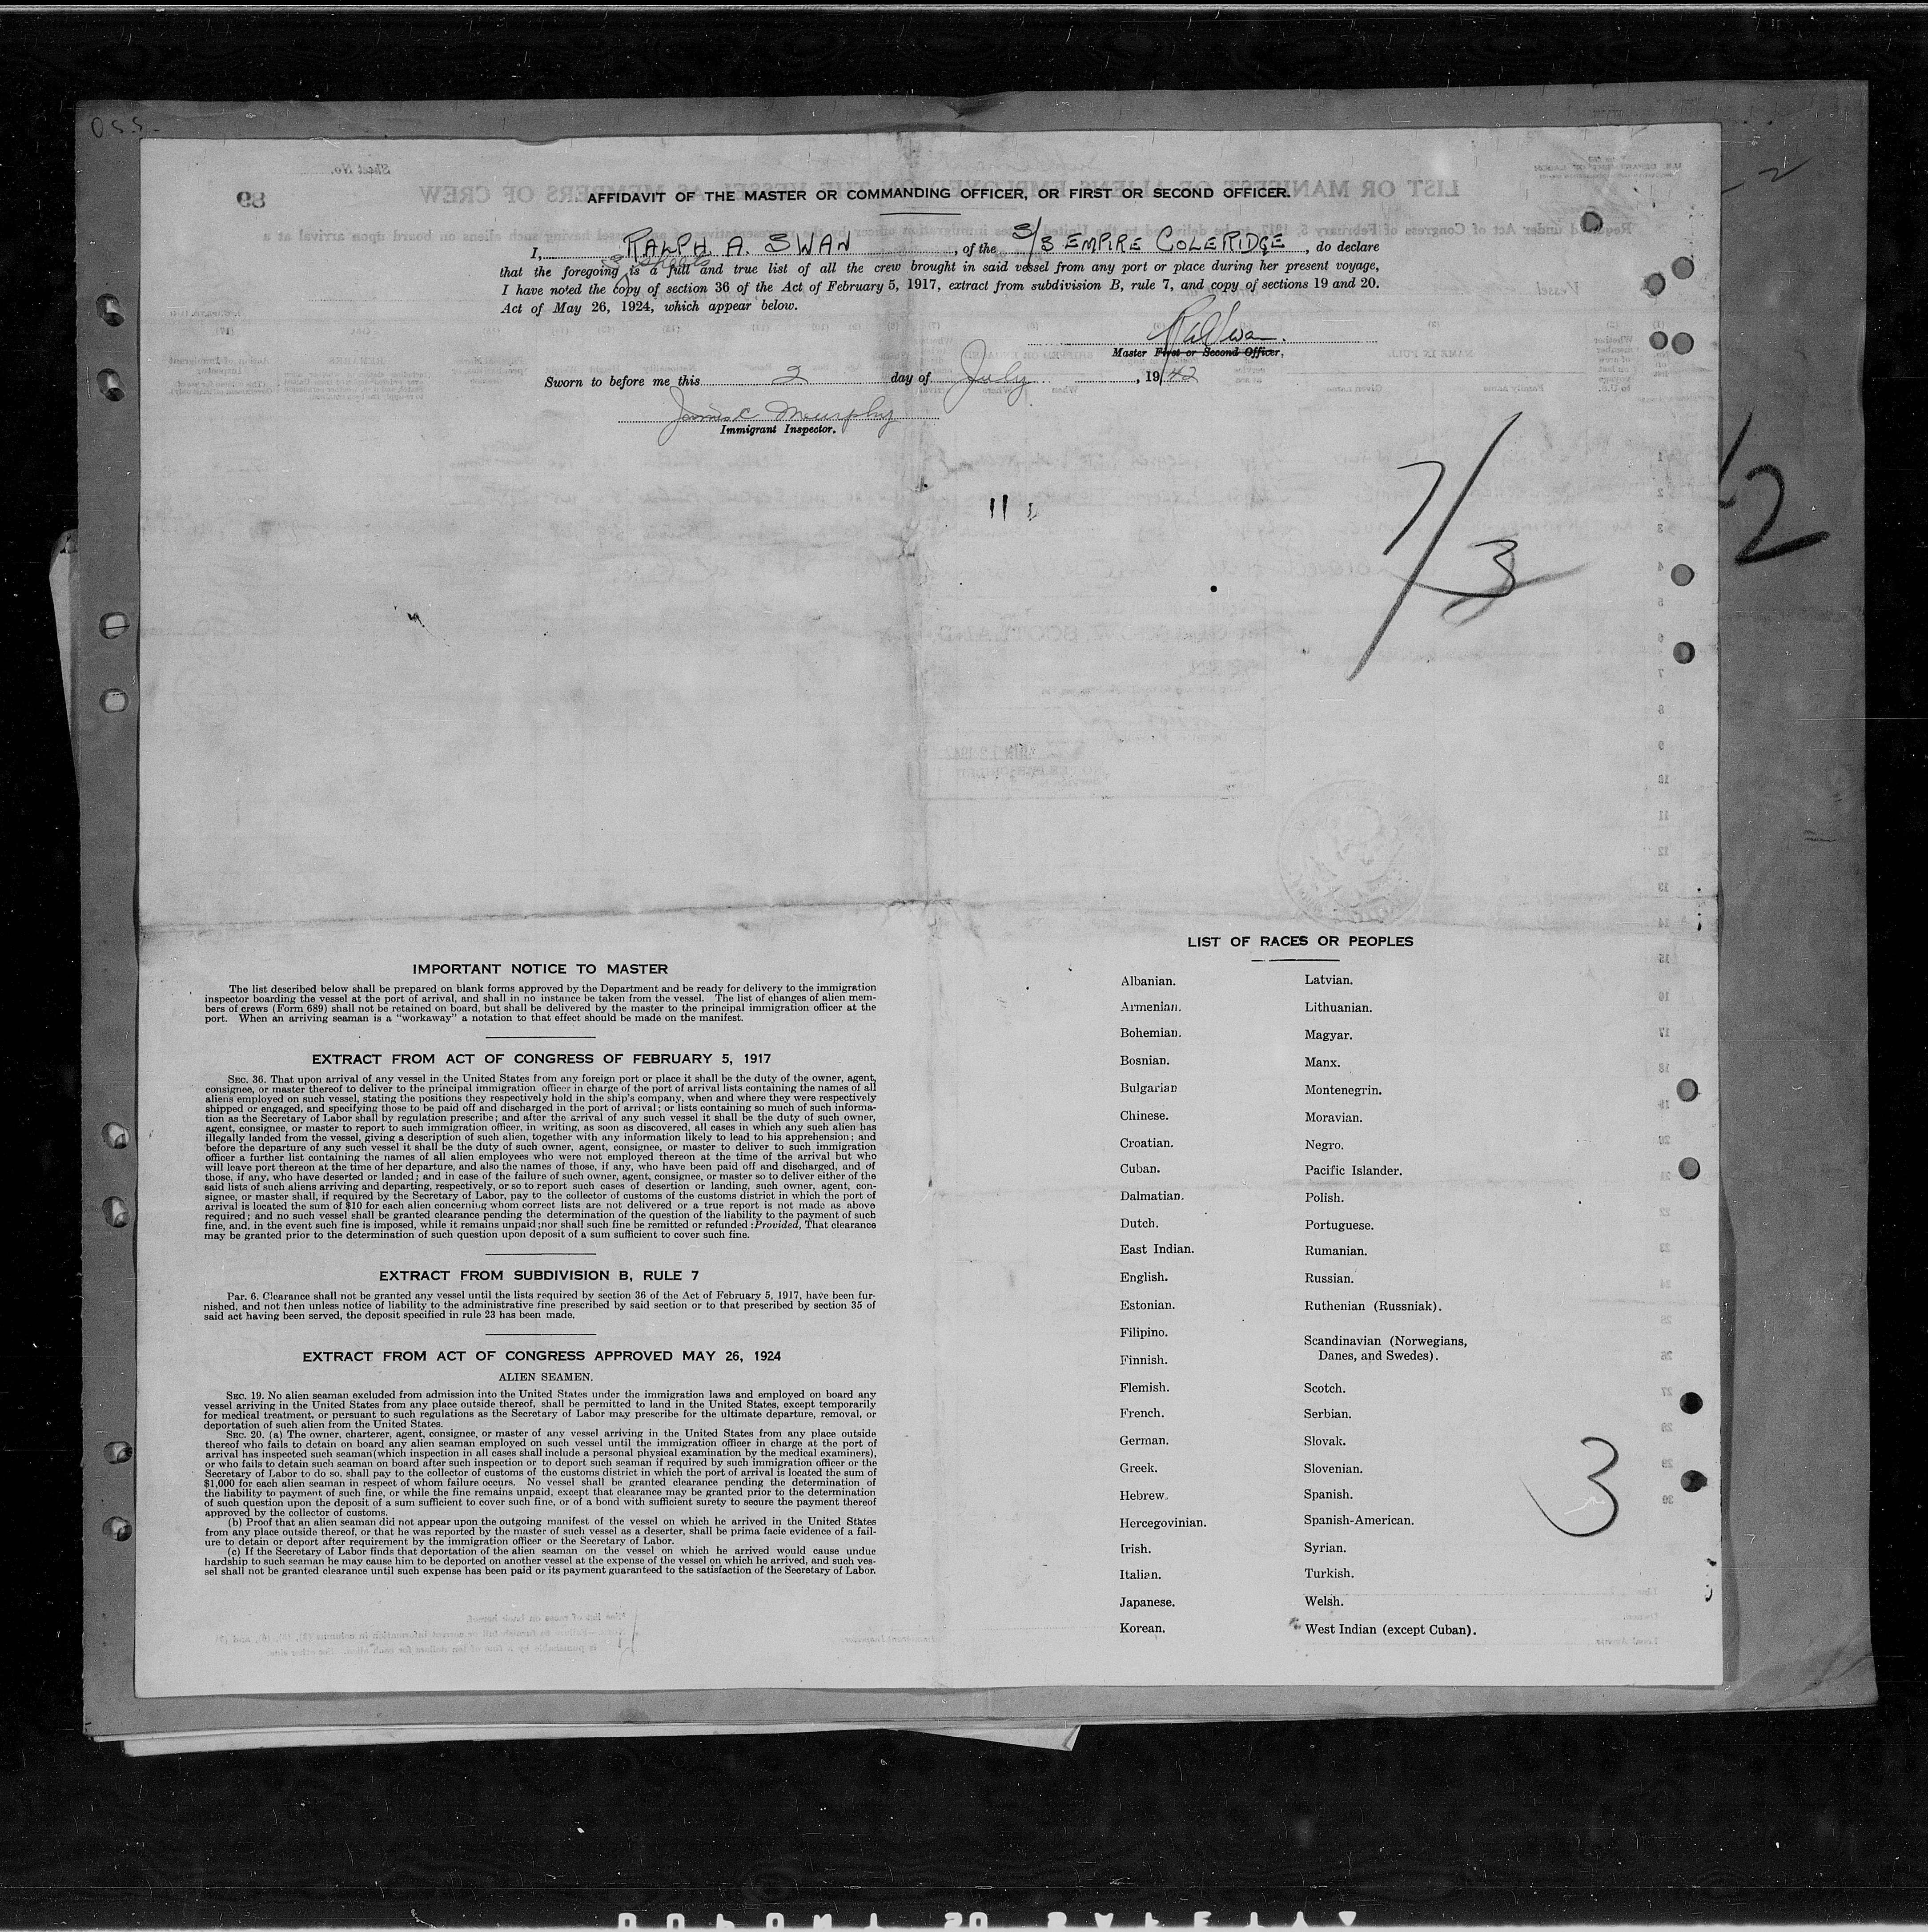 O.S.S.
AFFIDAVIT OF THE MASTER OR COMMANDING OFFICER, OR FIRST OR SECOND OFFICER.
I, RALPH. A. SWAN, of the S/S EMPIRE COLERIDGE, do declare
sheets
that the foregoing is a full and true list of all the crew brought in said vessel from any port or place during her present voyage,
I have noted the copy of section 36 of the Act of February 5, 1917, extract from subdivision B, rule 7, and copy of sections 19 and 20.
Act of May 26, 1924, which appear below.
Master First or Second Officer,
Sworn to before me this 2 day of July, 1942
James C Murphy
Immigrant Inspector.
7/3
2
IMPORTANT NOTICE TO MASTER
The list described below shall be prepared on blank forms approved by the Department and be ready for delivery to the immigration
inspector boarding the vessel at the port of arrival, and shall in no instance be taken from the vessel. The list of changes of alien mem-
bers of crews (Form 689) shall not be retained on board, but shall be delivered by the master to the principal immigration officer at the
port. When an arriving seaman is a "workaway" a notation to that effect should be made on the manifest.
EXTRACT FROM ACT OF CONGRESS OF FEBRUARY 5, 1917
SEC. 36. That upon arrival of any vessel in the United States from any foreign port or place it shall be the duty of the owner, agent,
consignee, or master thereof to deliver to the principal immigration officer in charge of the port of arrival lists containing the names of all
aliens employed on such vessel, stating the positions they respectively hold in the ship's company, when and where they were respectively
shipped or engaged, and specifying those to be paid off and discharged in the port of arrival; or lists containing so much of such informa-
tion as the Secretary of Labor shall by regulation prescribe; and after the arrival of any such vessel it shall be the duty of such owner,
agent, consignee, or master to report to such immigration officer, in writing, as soon as discovered, all cases in which any such alien has
illegally landed from the vessel, giving a description of such alien, together with any information likely to lead to his apprehension; and
before the departure of any such vessel it shall be the duty of such owner, agent, consignee, or master to deliver to such immigration
officer a further list containing the names of all alien employees who were not employed thereon at the time of the arrival but who
will leave port thereon at the time of her departure, and also the names of those, if any, who have been paid off and discharged, and of
those, if any, who have deserted or landed; and in case of the failure of such owner, agent, consignee, or master so to deliver either of the
said lists of such aliens arriving and departing, respectively, or so to report such cases of desertion or landing, such owner, agent, con-
signee, or master shall, if required by the Secretary of Labor, pay to the collector of customs of the customs district in which the port of
arrival is located the sum of $10 for each alien concerning whom correct lists are not delivered or a true report is not made as above
required; and no such vessel shall be granted clearance pending the determination of the question of the liability to the payment of such
fine, and. in the event such fine is imposed, while it remains unpaid;nor shall such fine be remitted or refunded :Provided, That clearance
may be granted prior to the determination of such question upon deposit of a sum sufficient to cover such fine.
EXTRACT FROM SUBDIVISION B, RULE 7
Par. 6. Clearance shall not be granted any vessel until the lists required by section 36 of the Act of February 5, 1917, have been fur-
nished, and not then unless notice of liability to the administrative fine prescribed by said section or to that prescribed by section 35 of
said act having been served, the deposit specified in rule 23 has been made.
EXTRACT FROM ACT OF CONGRESS APPROVED MAY 26, 1924
ALIEN SEAMEN.
SEC. 19. No alien seaman excluded from admission into the United States under the immigration laws and employed on board any
vessel arriving in the United States from any place outside thereof, shall be permitted to land in the United States, except temporarily
for medical treatment, or pursuant to such regulations as the Secretary of Labor may prescribe for the ultimate departure, removal, or
deportation of such alien from the United States.
SEC. 20. (a) The owner, charterer, agent, consignee, or master of any vessel arriving in the United States from any place outside
thereof who fails to detain on board any alien seaman employed on such vessel until the immigration officer in charge at the port of
arrival has inspected such seaman(which inspection in all cases shall include a personal physical examination by the medical examiners),
or who fails to detain such seaman on board after such inspection or to deport such seaman if required by such immigration officer or the
Secretary of Labor to do so, shall pay to the collector of customs of the customs district in which the port of arrival is located the sum of
$1,000 for each alien seaman in respect of whom failure occurs. No vessel shall be granted clearance pending the determination of
the liability to payment of such fine, or while the fine remains unpaid, except that clearance may be granted prior to the determination
of such question upon the deposit of a sum sufficient to cover such fine, or of a bond with sufficient surety to secure the payment thereof
approved by the collector of customs.
(b) Proof that an alien seaman did not appear upon the outgoing manifest of the vessel on which he arrived in the United States
from any place outside thereof, or that he was reported by the master of such vessel as a deserter, shall be prima facie evidence of a fail-
ure to detain or deport after requirement by the immigration officer or the Secretary of Labor.
(c) If the Secretary of Labor finds that deportation of the alien seaman on the vessel on which he arrived would cause undue
hardship to such seaman he may cause him to be deported on another vessel at the expense of the vessel on which he arrived, and such ves-
sel shall not be granted clearance until such expense has been paid or its payment guaranteed to the satisfaction of the Secretary of Labor.
LIST OF RACES OR PEOPLES
Albanian.
Armenian.
Bohemian.
Bosnian.
Bulgarian
Chinese.
Croatian.
Cuban.
Dalmatian.
Dutch.
East Indian.
English.
Estonian.
Filipino.
Finnish.
Flemish.
French.
German.
Greek.
Hebrew.
Hercegovinian.
Irish.
Italian.
Japanese.
Korean.
Latvian.
Lithuanian.
Magyar.
Manx.
Montenegrin.
Moravian.
Negro.
Pacific Islander.
Polish.
Portuguese.
Rumanian.
Russian.
Ruthenian (Russniak).
Scandinavian (Norwegians,
Danes, and Swedes).
Scotch.
Serbian.
Slovak.
Slovenian.
Spanish.
Spanish-American.
Syrian.
Turkish.
Welsh.
West Indian (except Cuban).
3